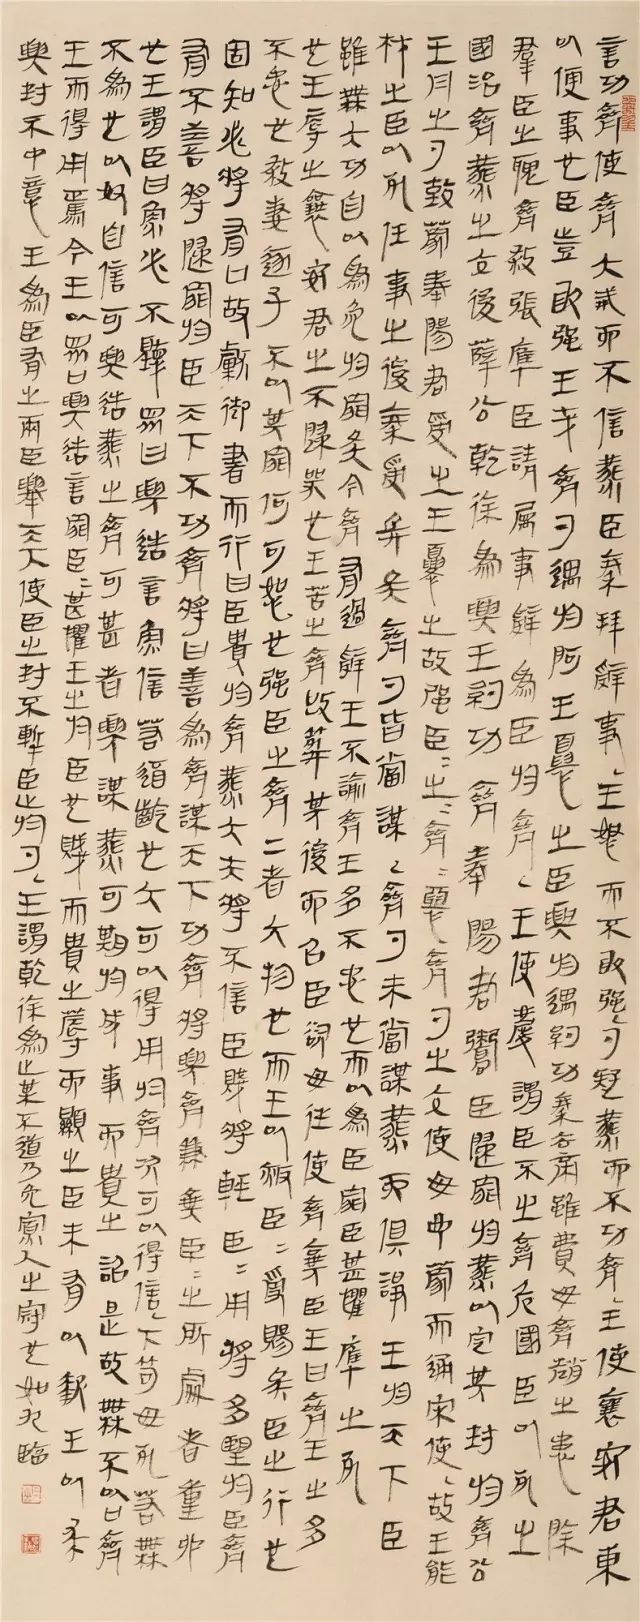 言功齊使齊大戒而不信燕臣秦拜辭事王怒而不敢强勺疑燕而不功齊王使襄安君東
以便事也臣豈敢强王才齊勺遇於阿王憂之臣與於遇約功秦去帝雖費毋齊趙之患除
羣臣之聭齊殺張庫臣請属事辭爲臣於齊王使慶謂臣不之齊危國臣以死之
國治齊燕之交後薛公乾徐爲與王約功齊奉陽君鬻臣歸罪於燕以定其封於齊公
王月之勺致蒙奉陽君受之王憂之故强臣〻之〻齊〻惡齊勺之交使毋予蒙而通宋使故王能
材之臣以死任事之後秦受兵矣齊勺皆嘗謀〻齊勺未嘗謀燕而俱諍王於天下臣
雖無大功自以爲免於罪矣今齊有過辭王不諭齊王多不忠也而以爲臣罪臣甚懼庫之死
也王辱之襄安君之不歸哭也王苦之齊改葬其後而召臣欲毋往使齊棄臣王曰齊王之多
不忠也殺妻逐子不以其罪何可怨也强臣之齊二者大物也而王以赦臣〻受賜矣臣之行也
固知必將有口故獻御書而行曰臣貴於齊燕大夫將不信臣賤將輕臣〻用將多望於臣齊
有不善將歸罪於臣天下不功齊將曰善爲齊謀天下功齊將與齊兼棄臣〻之所處者重卵
也王謂臣曰魚必不聽衆口與造言魚信若齕也大可以得用於齊次可以得信〻下苟毋死若無
不爲也以奴自信可與造燕之齊可甚者與謀燕可期於成事而貴之詔是故無不以口齊
王而得用焉今王以衆口與造言罪臣〻甚懼王之於臣也賤而貴之蓐而顯之臣未有以報王以求
與封不中意王爲臣有之兩臣舉天下使臣之封不慚臣止於勺〻王謂乾徐爲止某不道乃免寡人之冠也如九臨